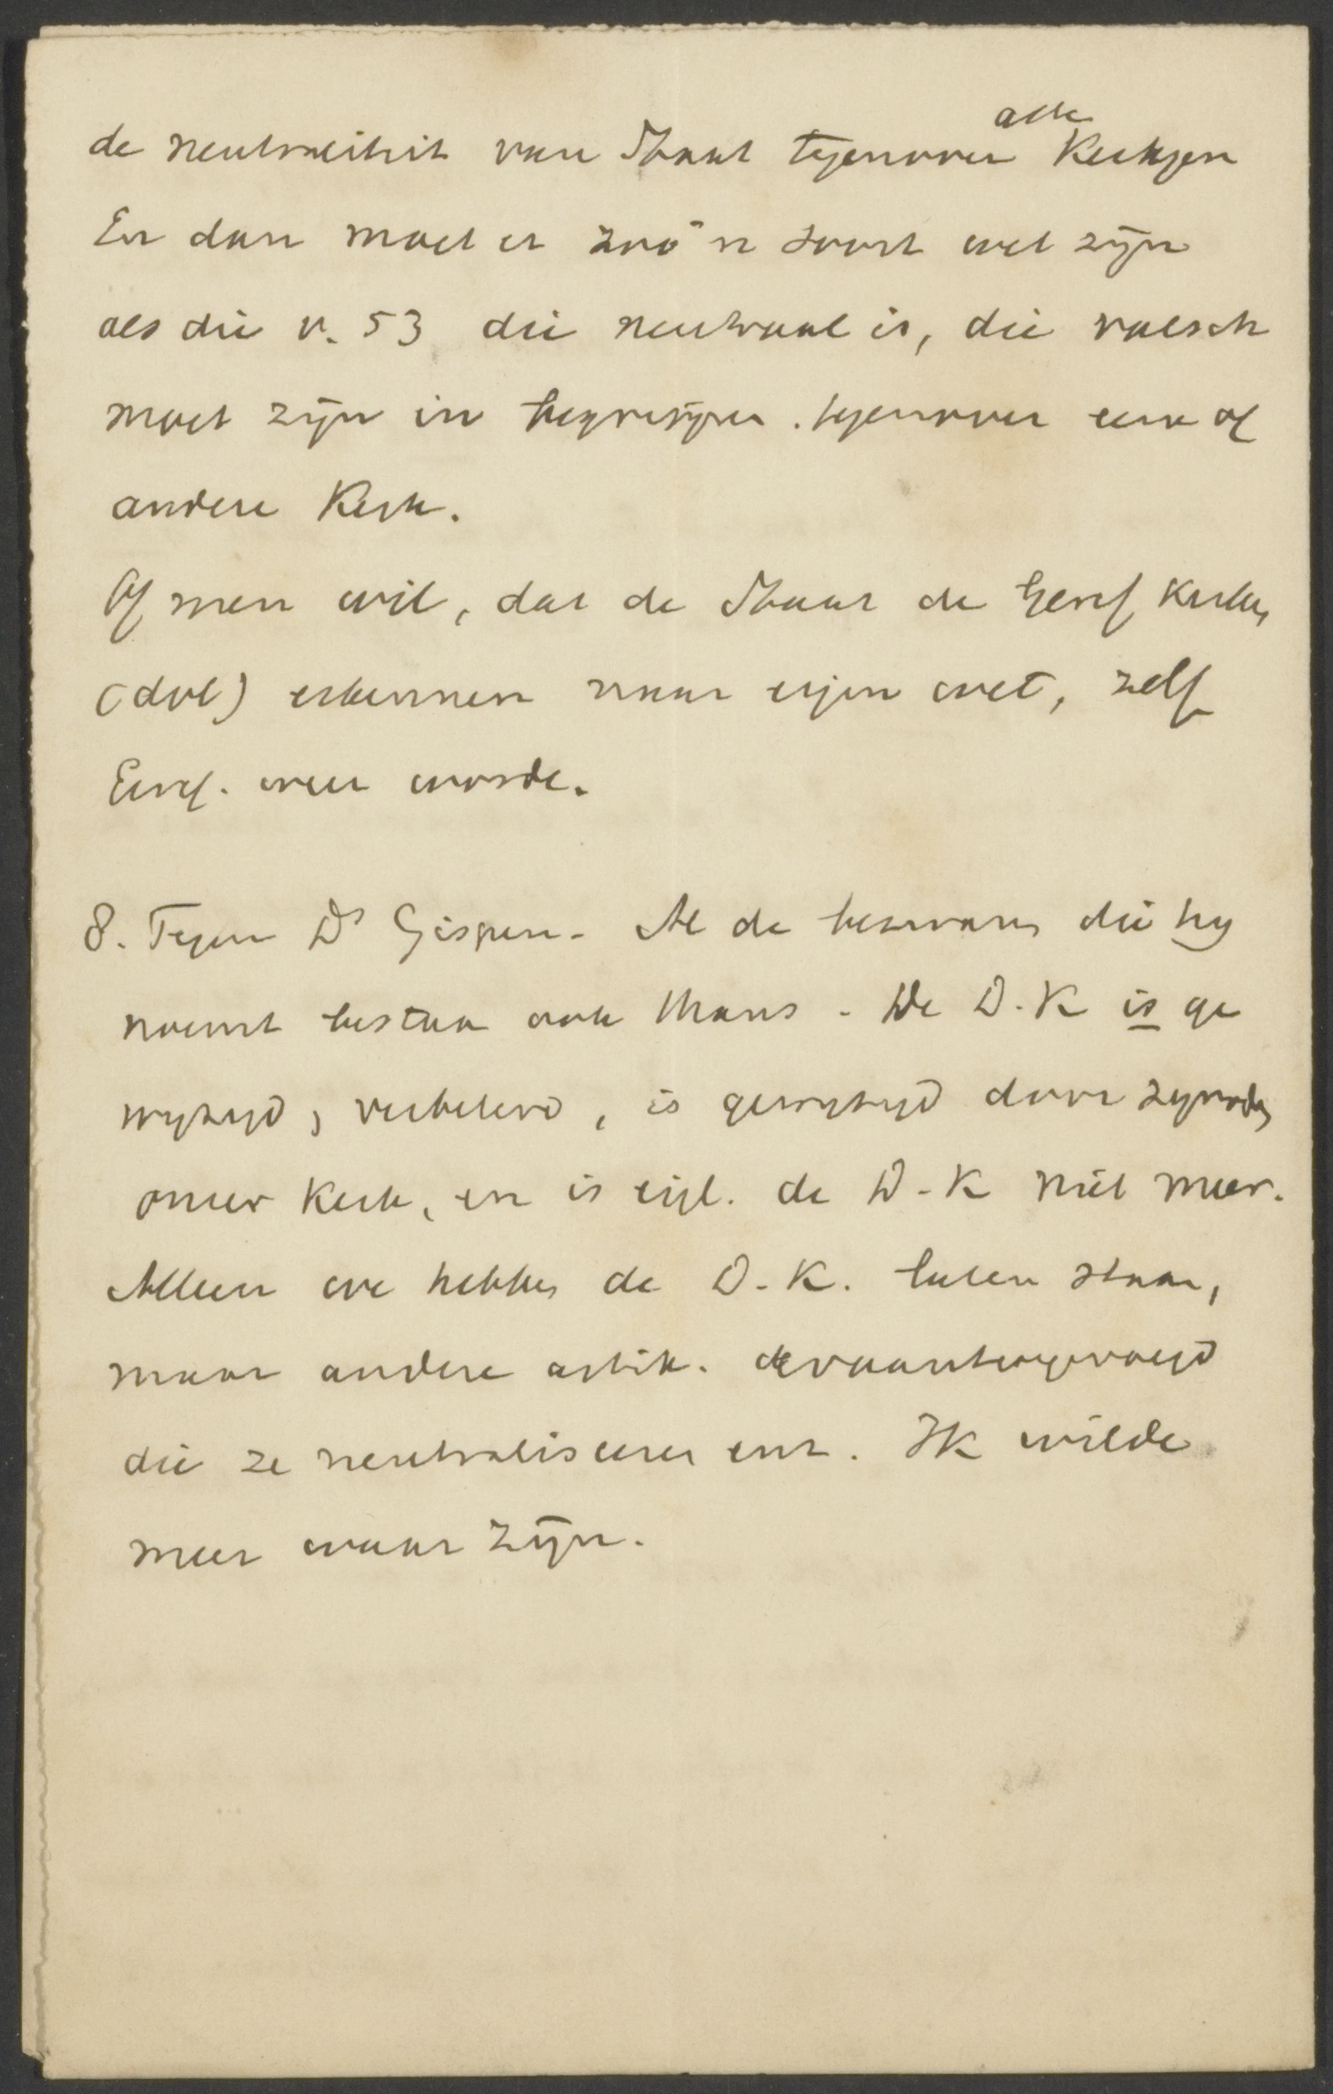 de neutraliteit van Staat tegenover alle Kerkgen
En dan moet er zoo'n soort wet zijn
als die v. 53 die neutraal is, die valsch
moet zijn in begrippen tegenover eene of
andere Kerk.
Of men wil, dat de Staat de Geref Kerken
(dol) erkennen naar eigen wet, zelf
Geref. weer worde.
8. Tegen Ds Gispen. Al de bezwaren die hy
noemt bestaan ook thans. De D.K is ge
wyzigd, verbeterd, is gewyzigd door synodes
onzer Kerk, en is eigl. de D.K niet meer.
Alleen we hebben de D.K. laten staan,
maar andere artik. eraantoegevoegd
die ze neutraliseeren enz. Ik wilde
meer waar zijn.